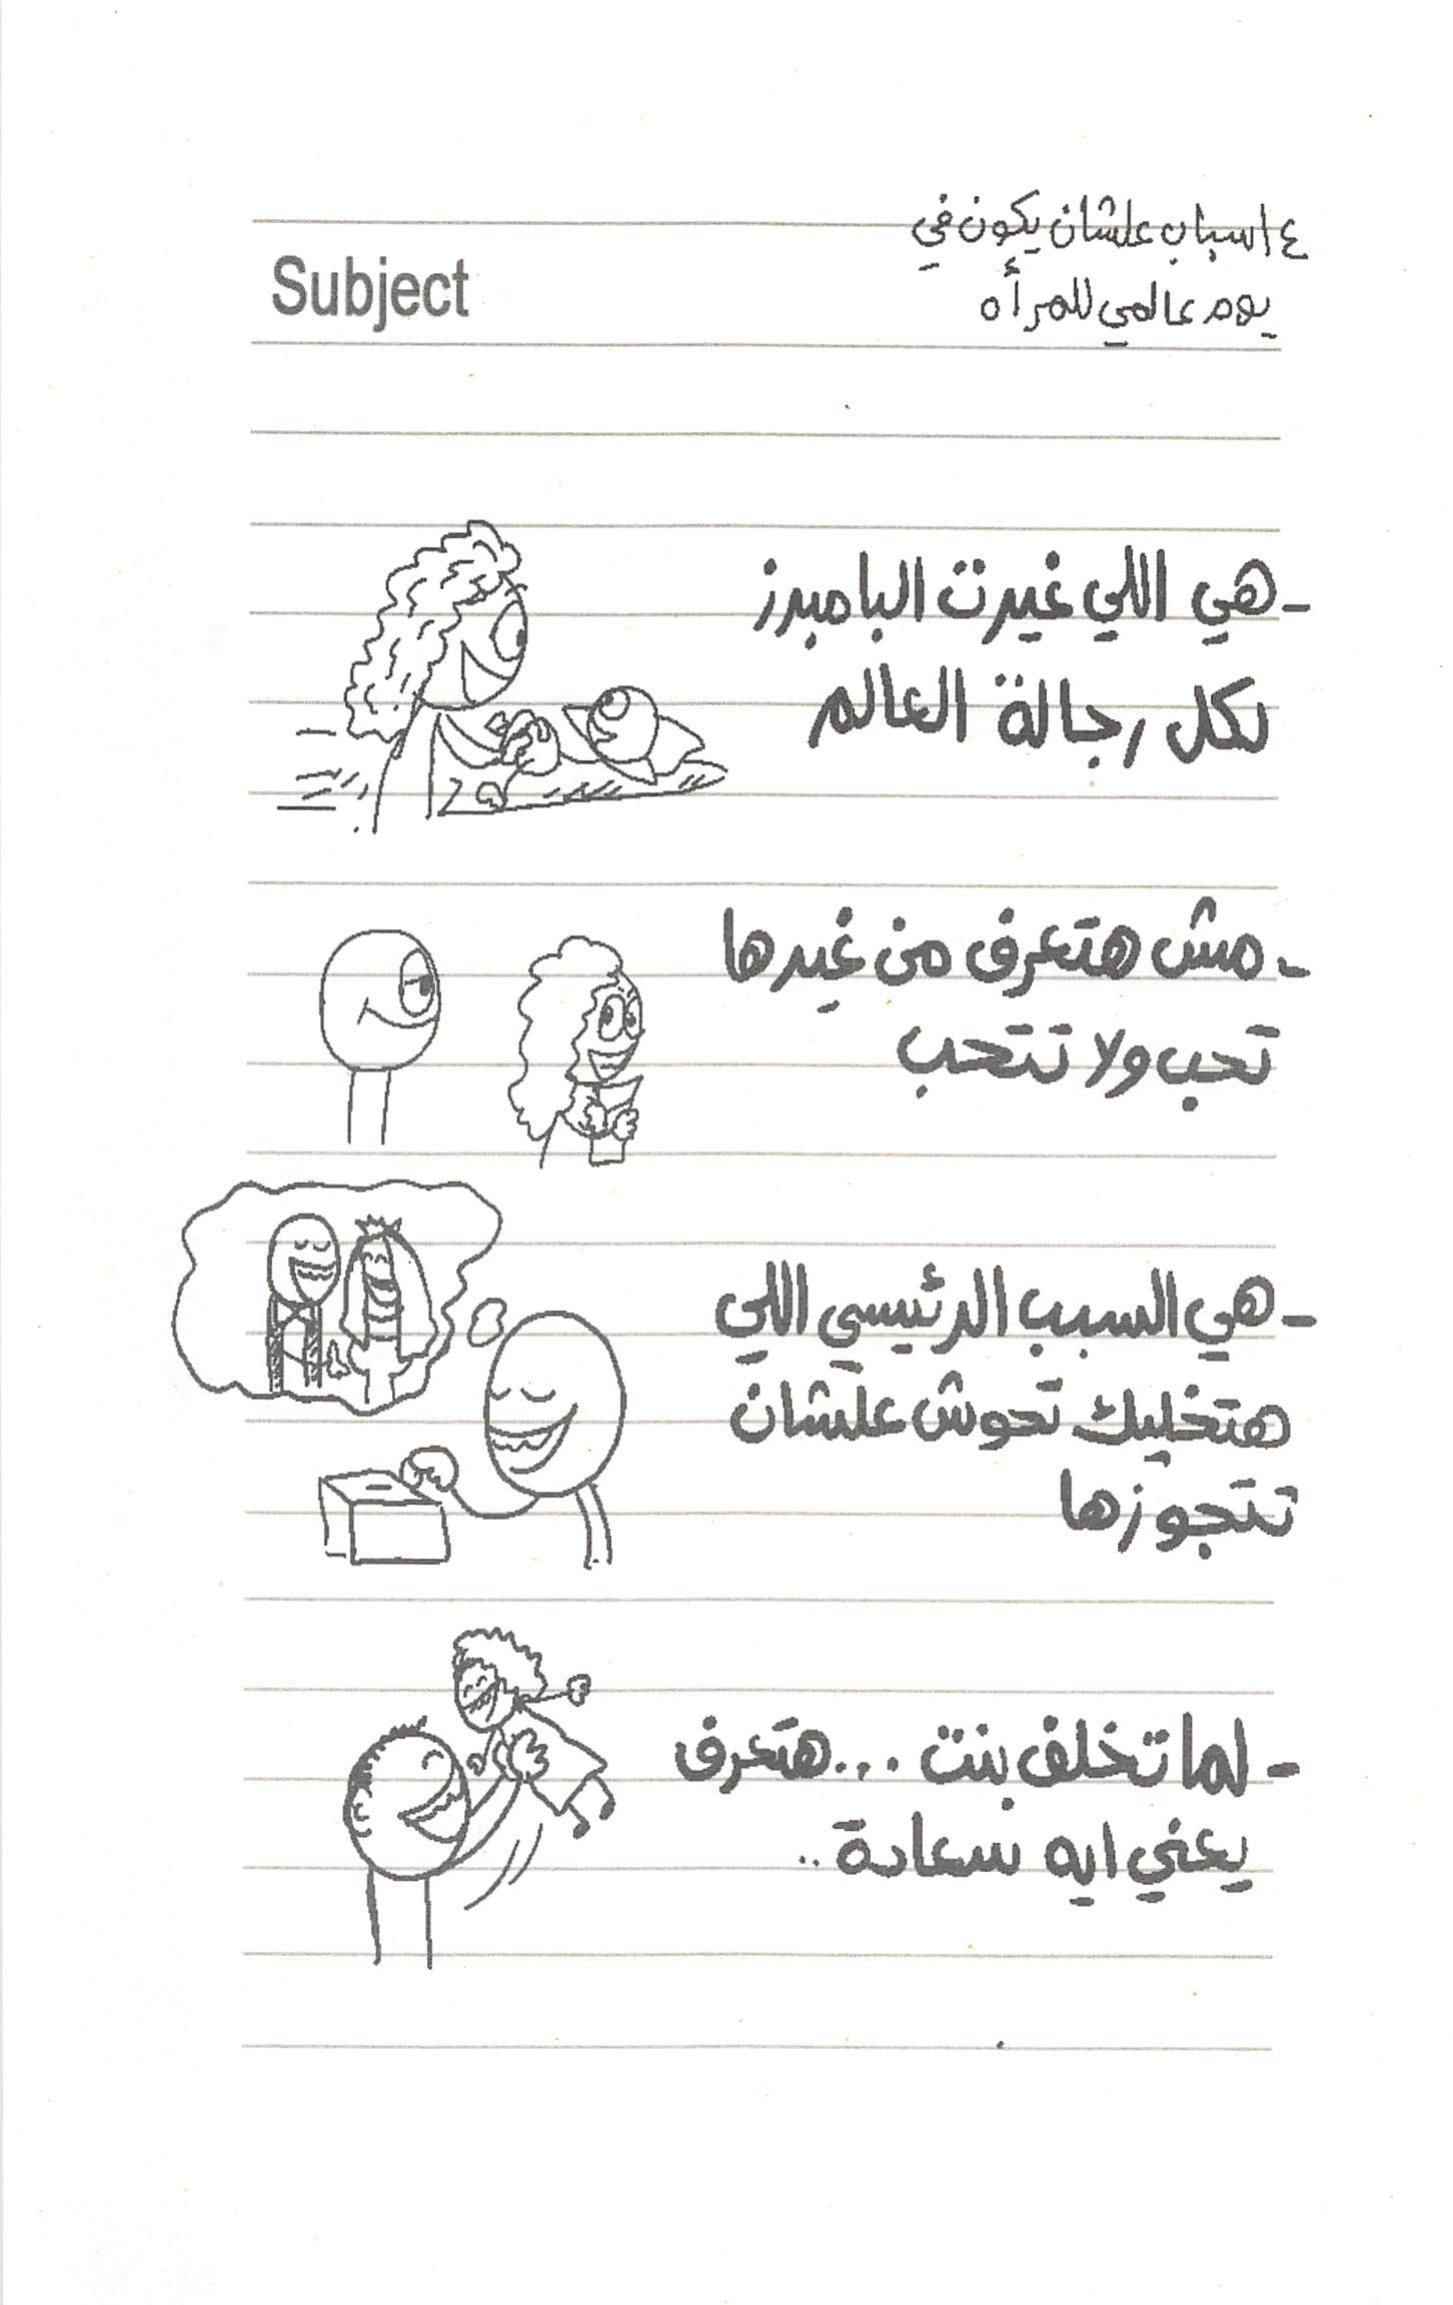 ٤ اسباب علشان يكون في
Subject
يوم عالمي للمرأه
- هي اللي غيرت البامبرز
لكل رجالة العالم
- مش هتعرف من غيرها
تحب ولا تتحب
- هي السبب الرئيسي اللي
هتخليك تحوش علشان
تتجوزها
- لما تخلف بنت ... هتعرف
يعني ايه سعادة ..